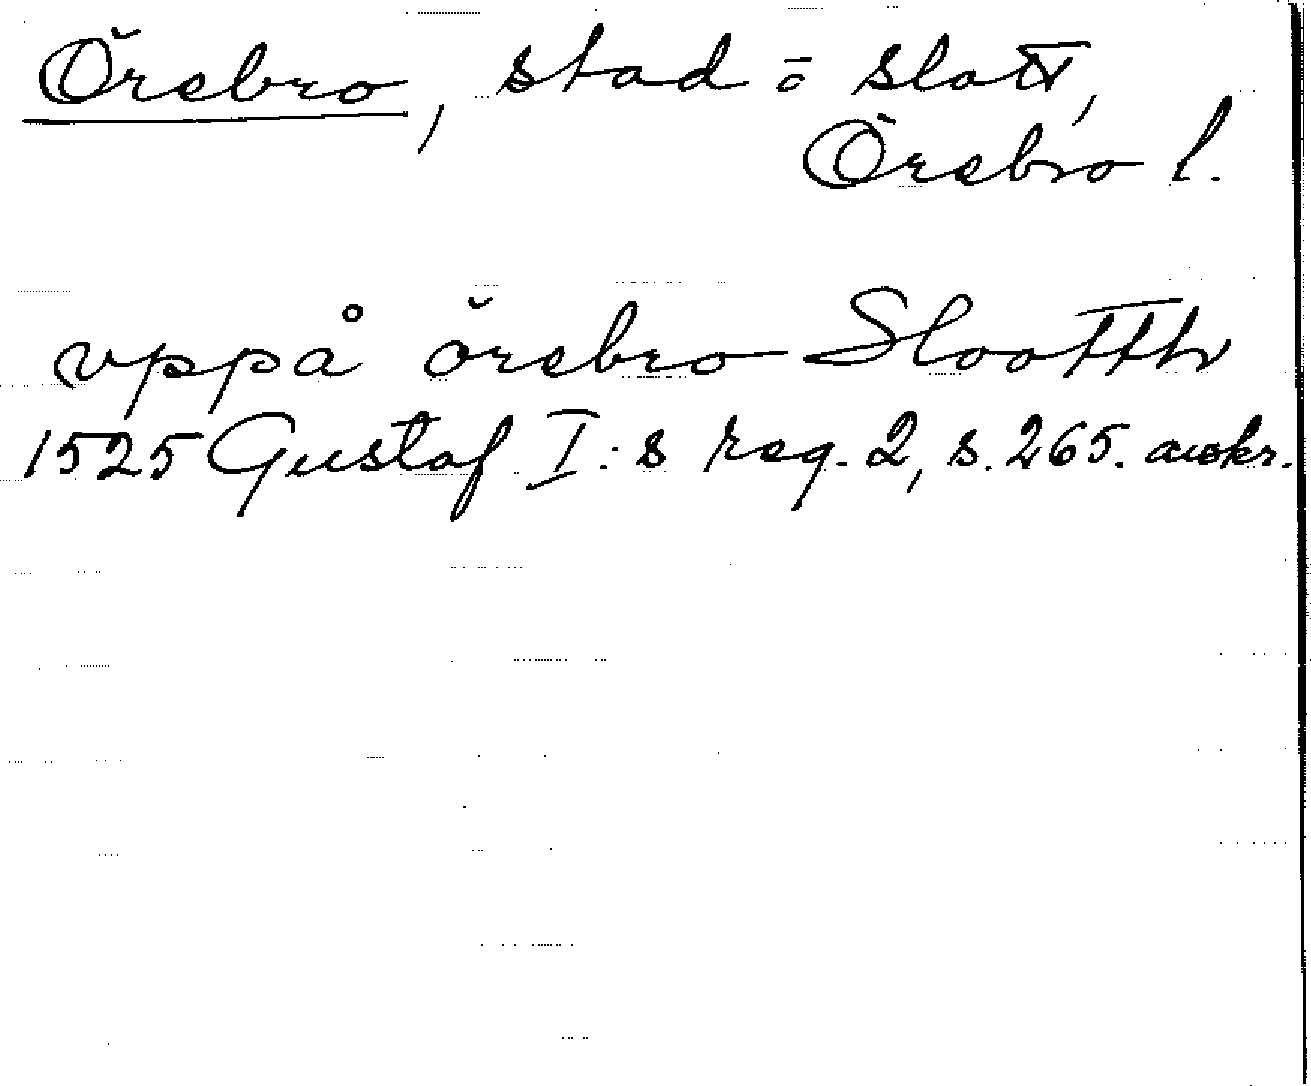 Örebro, stad o slott,
Örebro l.
vppå örebro Slootth
1525 Gustaf I:s reg. 2, s. 265. avskr.